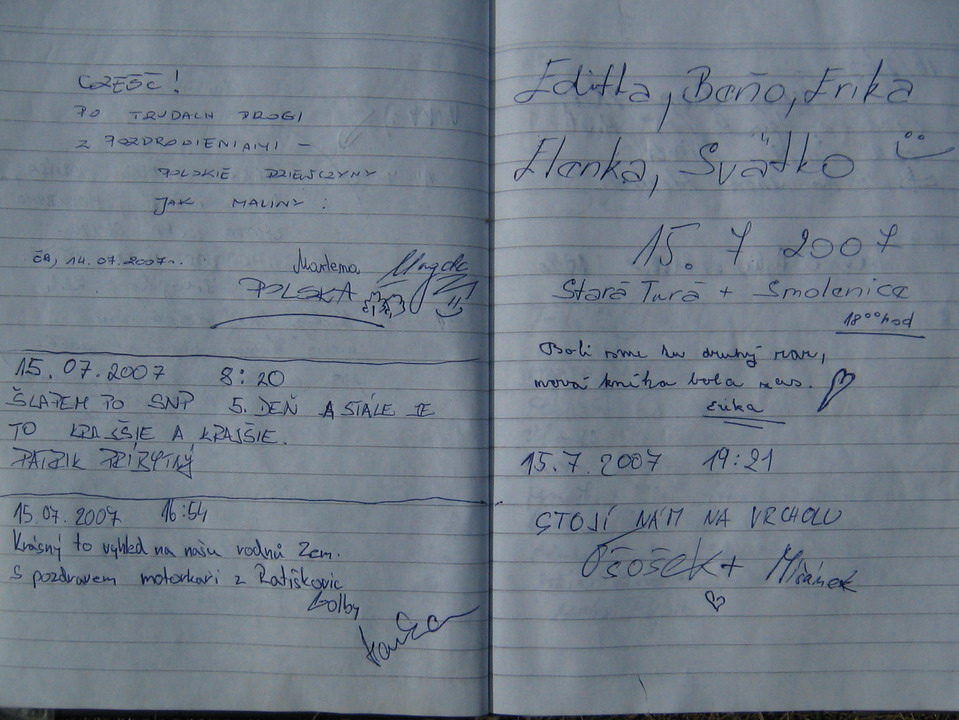 CZEŚĆ!
PO TRUDACH DROGI
Z POZDROWIENIAMI –
POLSKIE DZIEWCZYNY
JAK MALINY :
14.07.2007r.
Marlena
POLSKA
15.07.2007 8:20
ŠLAPEM PO SNP 5. DEŇ A STÁLE JE
TO KRAJŠIE A KRAJŠIE.
PATRIK PRÍBYTNÝ
15.07.2007 16:54
Krásný to výhled na našu rodnú Zem.
S pozdravem motorkaři z Ratíškovic
Golby
Editka, Baňo, Erika
Elenka, Svätko
15. 7. 2007
Stará Turá + Smolenice
18°°hod
Boli sme tu druhý raz,
nová kniha bola zas.
Erika
15.7.2007 19:21
STOJÍ NÁM NA VRCHOLU
Ošošek + Mišánek